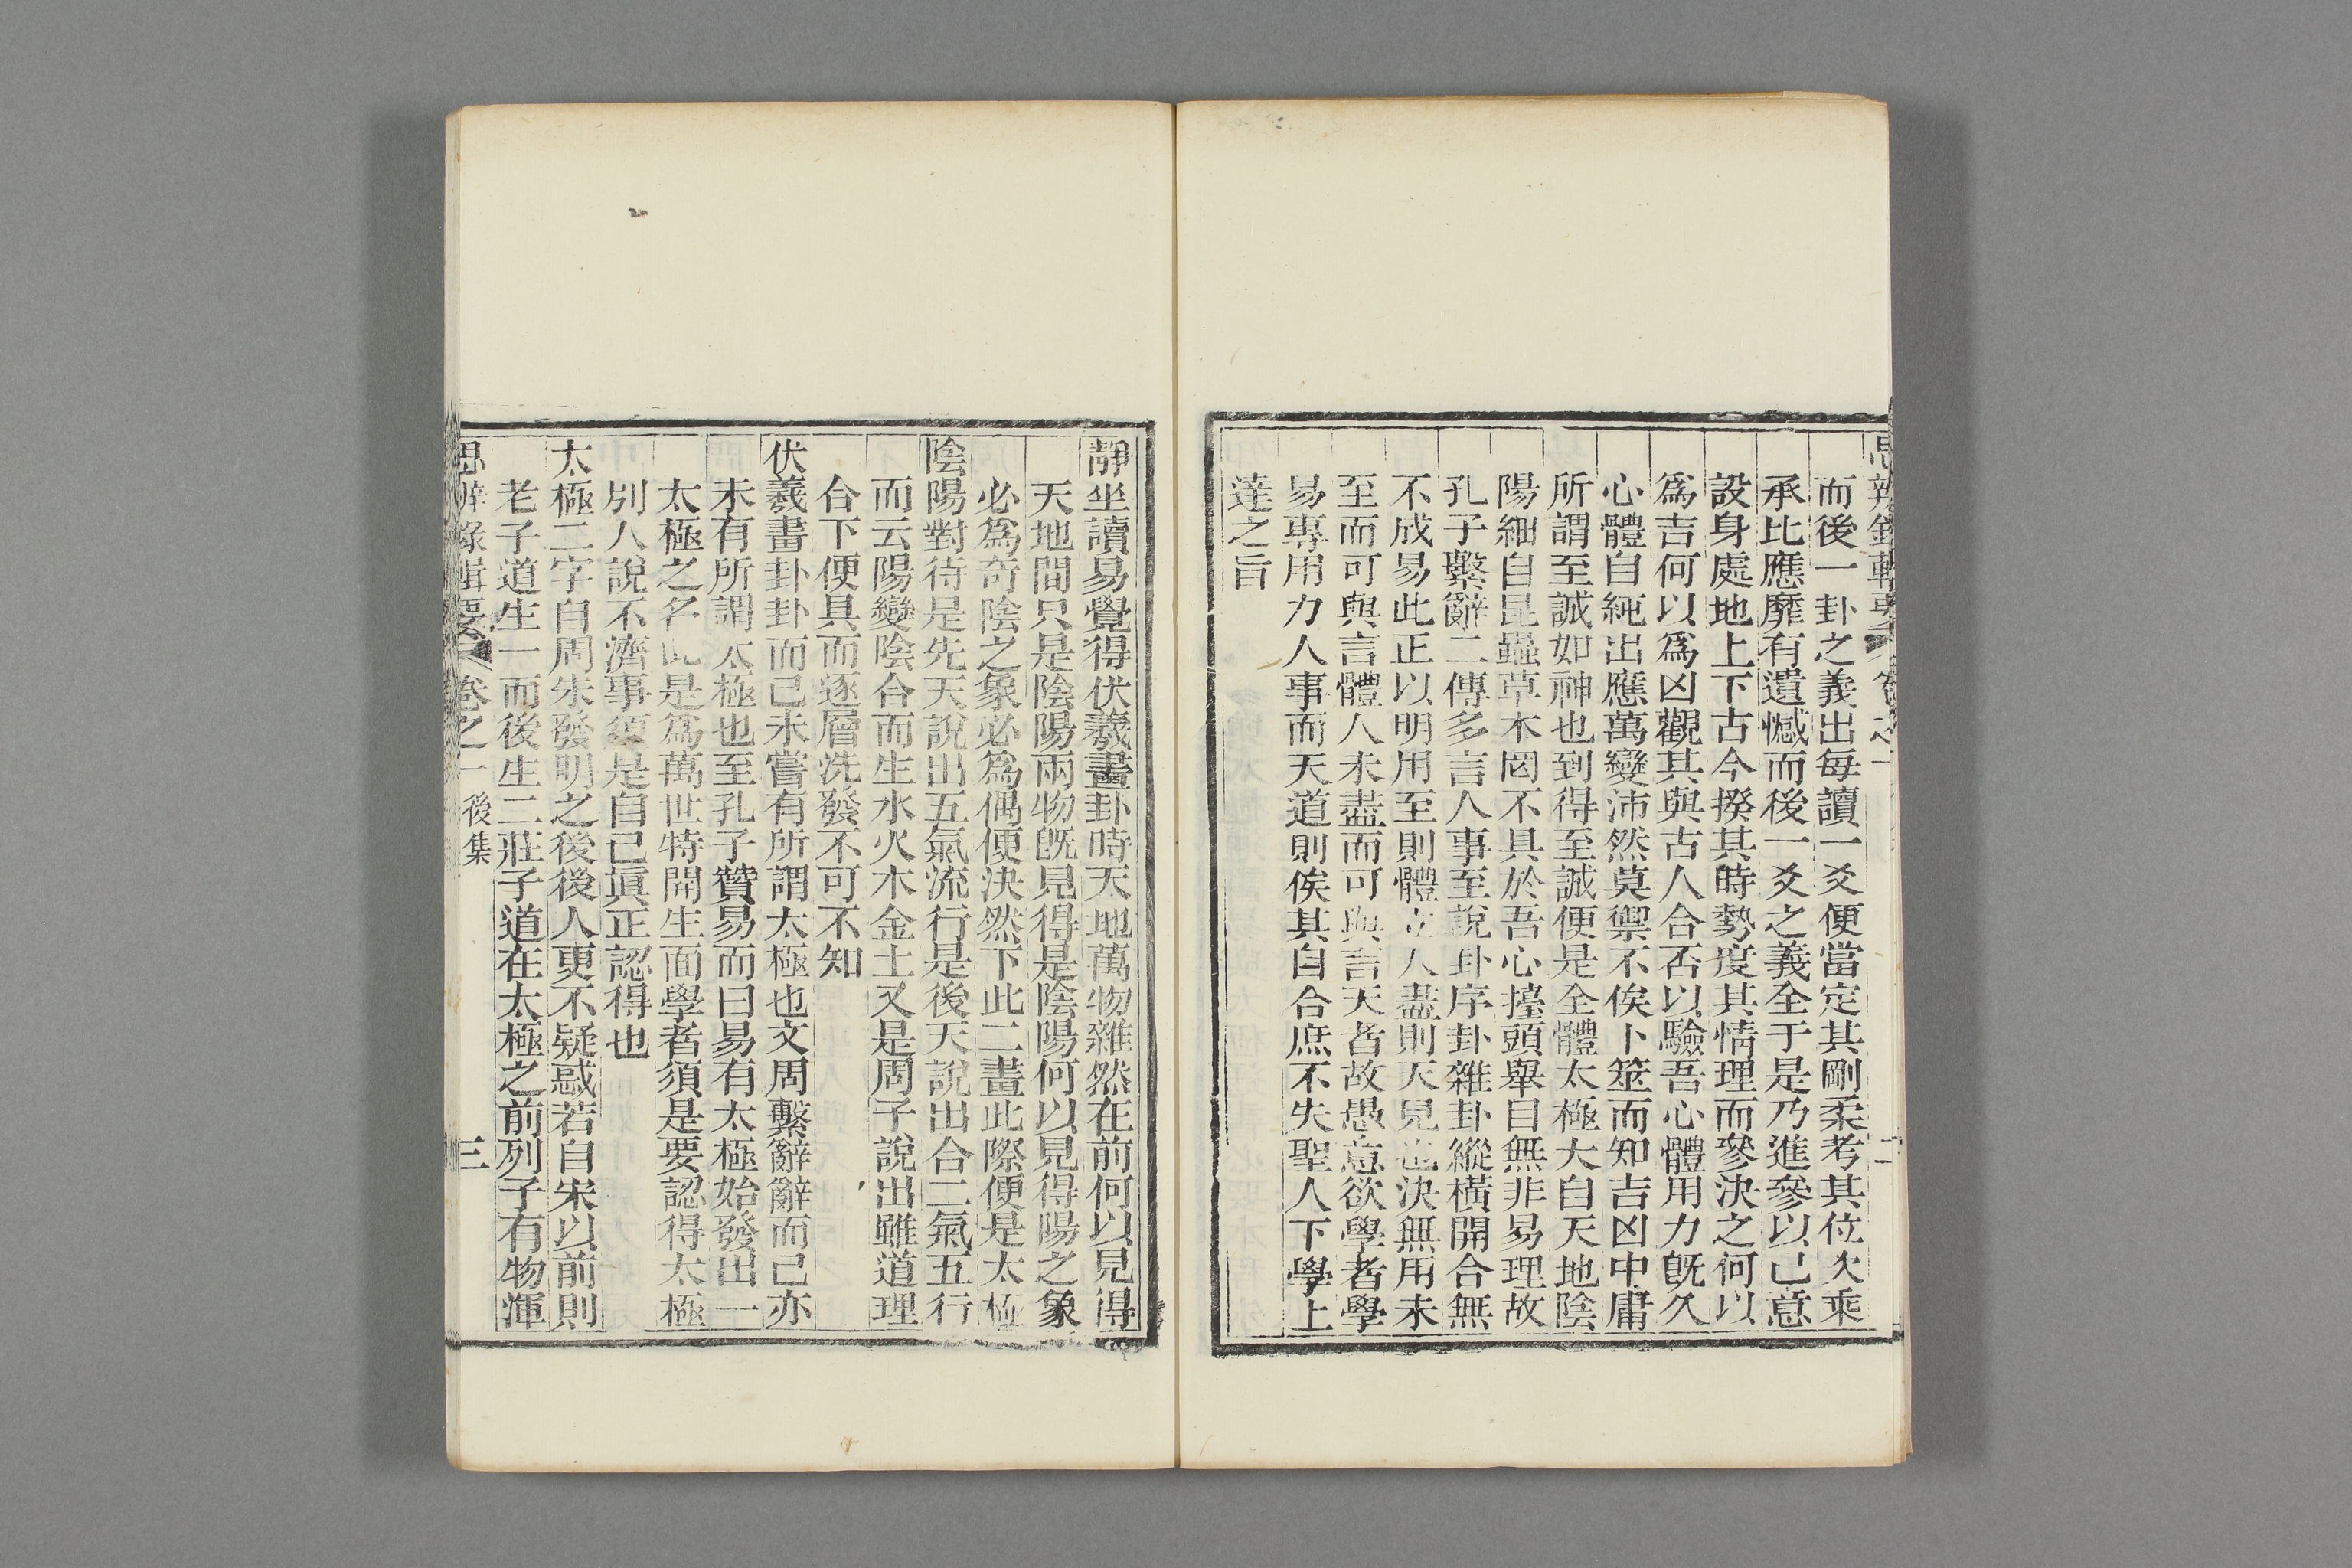 思辨錄輯要 卷之一 二
而後一卦之義出每讀一爻便當定其剛柔考其位次乘
承比應靡有遺憾而後一爻之義全于是乃進參以己意
設身處地上下古今揆其時勢度其情理而參決之何以
爲吉何以爲凶觀其與古人合否以驗吾心體用力旣久
心體自純出應萬變沛然莫禦不俟卜筮而知吉凶中庸
所謂至誠如神也到得至誠便是全體太極大自天地陰
陽細自昆蟲草木罔不具於吾心擡頭舉目無非易理故
孔子繫辭二傳多言人事至說卦序卦雜卦縱橫開合無
不成易此正以明用至則體立人盡則天見也決無用未
至而可與言體人未盡而可與言天者故愚意欲學者學
易專用力人事而天道則俟其自合庶不失聖人下學上
達之旨
靜坐讀易覺得伏羲畫卦時天地萬物雜然在前何以見得
天地間只是陰陽兩物旣見得是陰陽何以見得陽之象
必爲奇陰之象必爲偶便決然下此二畫此際便是太極
陰陽對待是先天說出五氣流行是後天說出合二氣五行
而云陽變陰合而生水火木金土又是周子說出雖道理
合下便具而逐層洗發不可不知
伏羲畫卦卦而已未嘗有所謂太極也文周繫辭辭而已亦
未有所謂太極也至孔子贊易而曰易有太極始發出一
太極之名此是爲萬世特開生面學者須是要認得太極
別人說不濟事須是自己眞正認得也
太極二字自周朱發明之後後人更不疑惑若自宋以前則
老子道生一而後生二莊子道在太極之前列子有物渾
思辨錄輯要 卷之一 後集 三